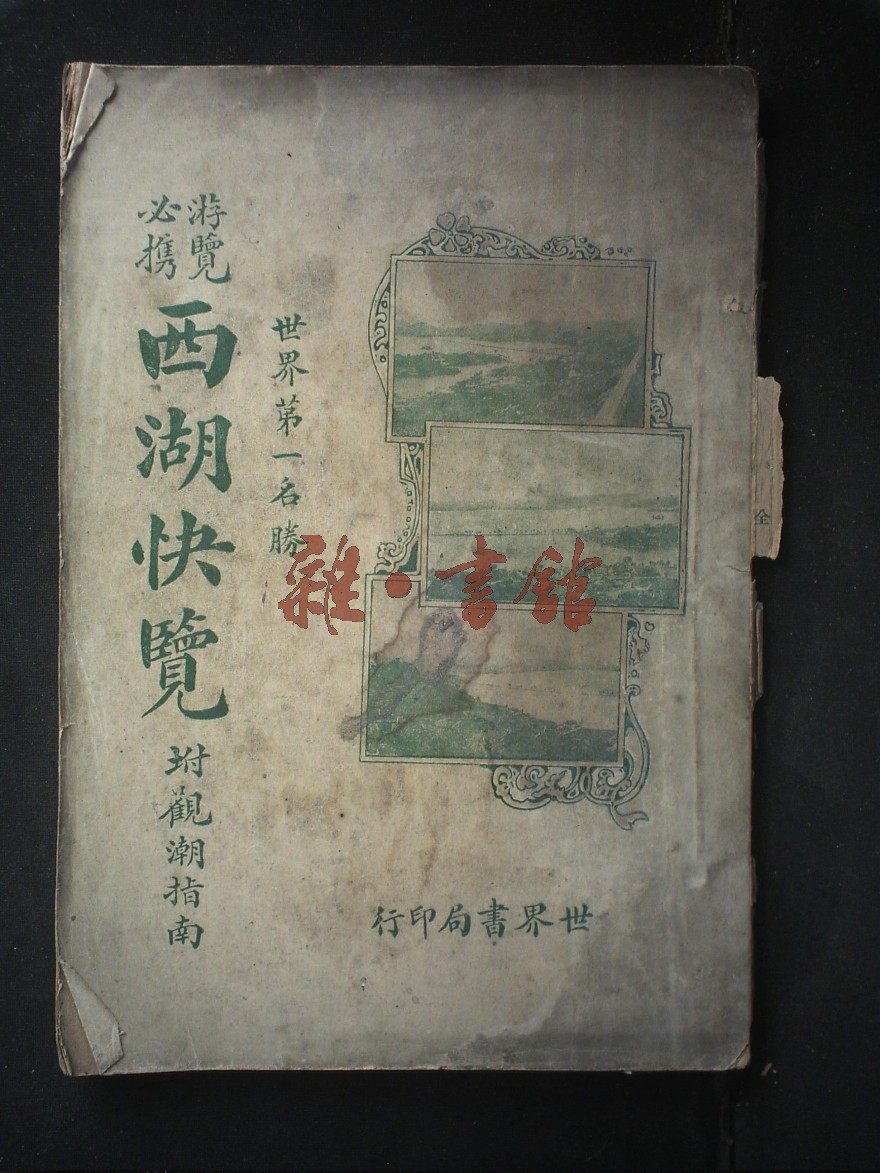 游覽
必携
西湖快覽
坿觀潮指南
世界第一名勝
世界書局印行
雜·書館
全